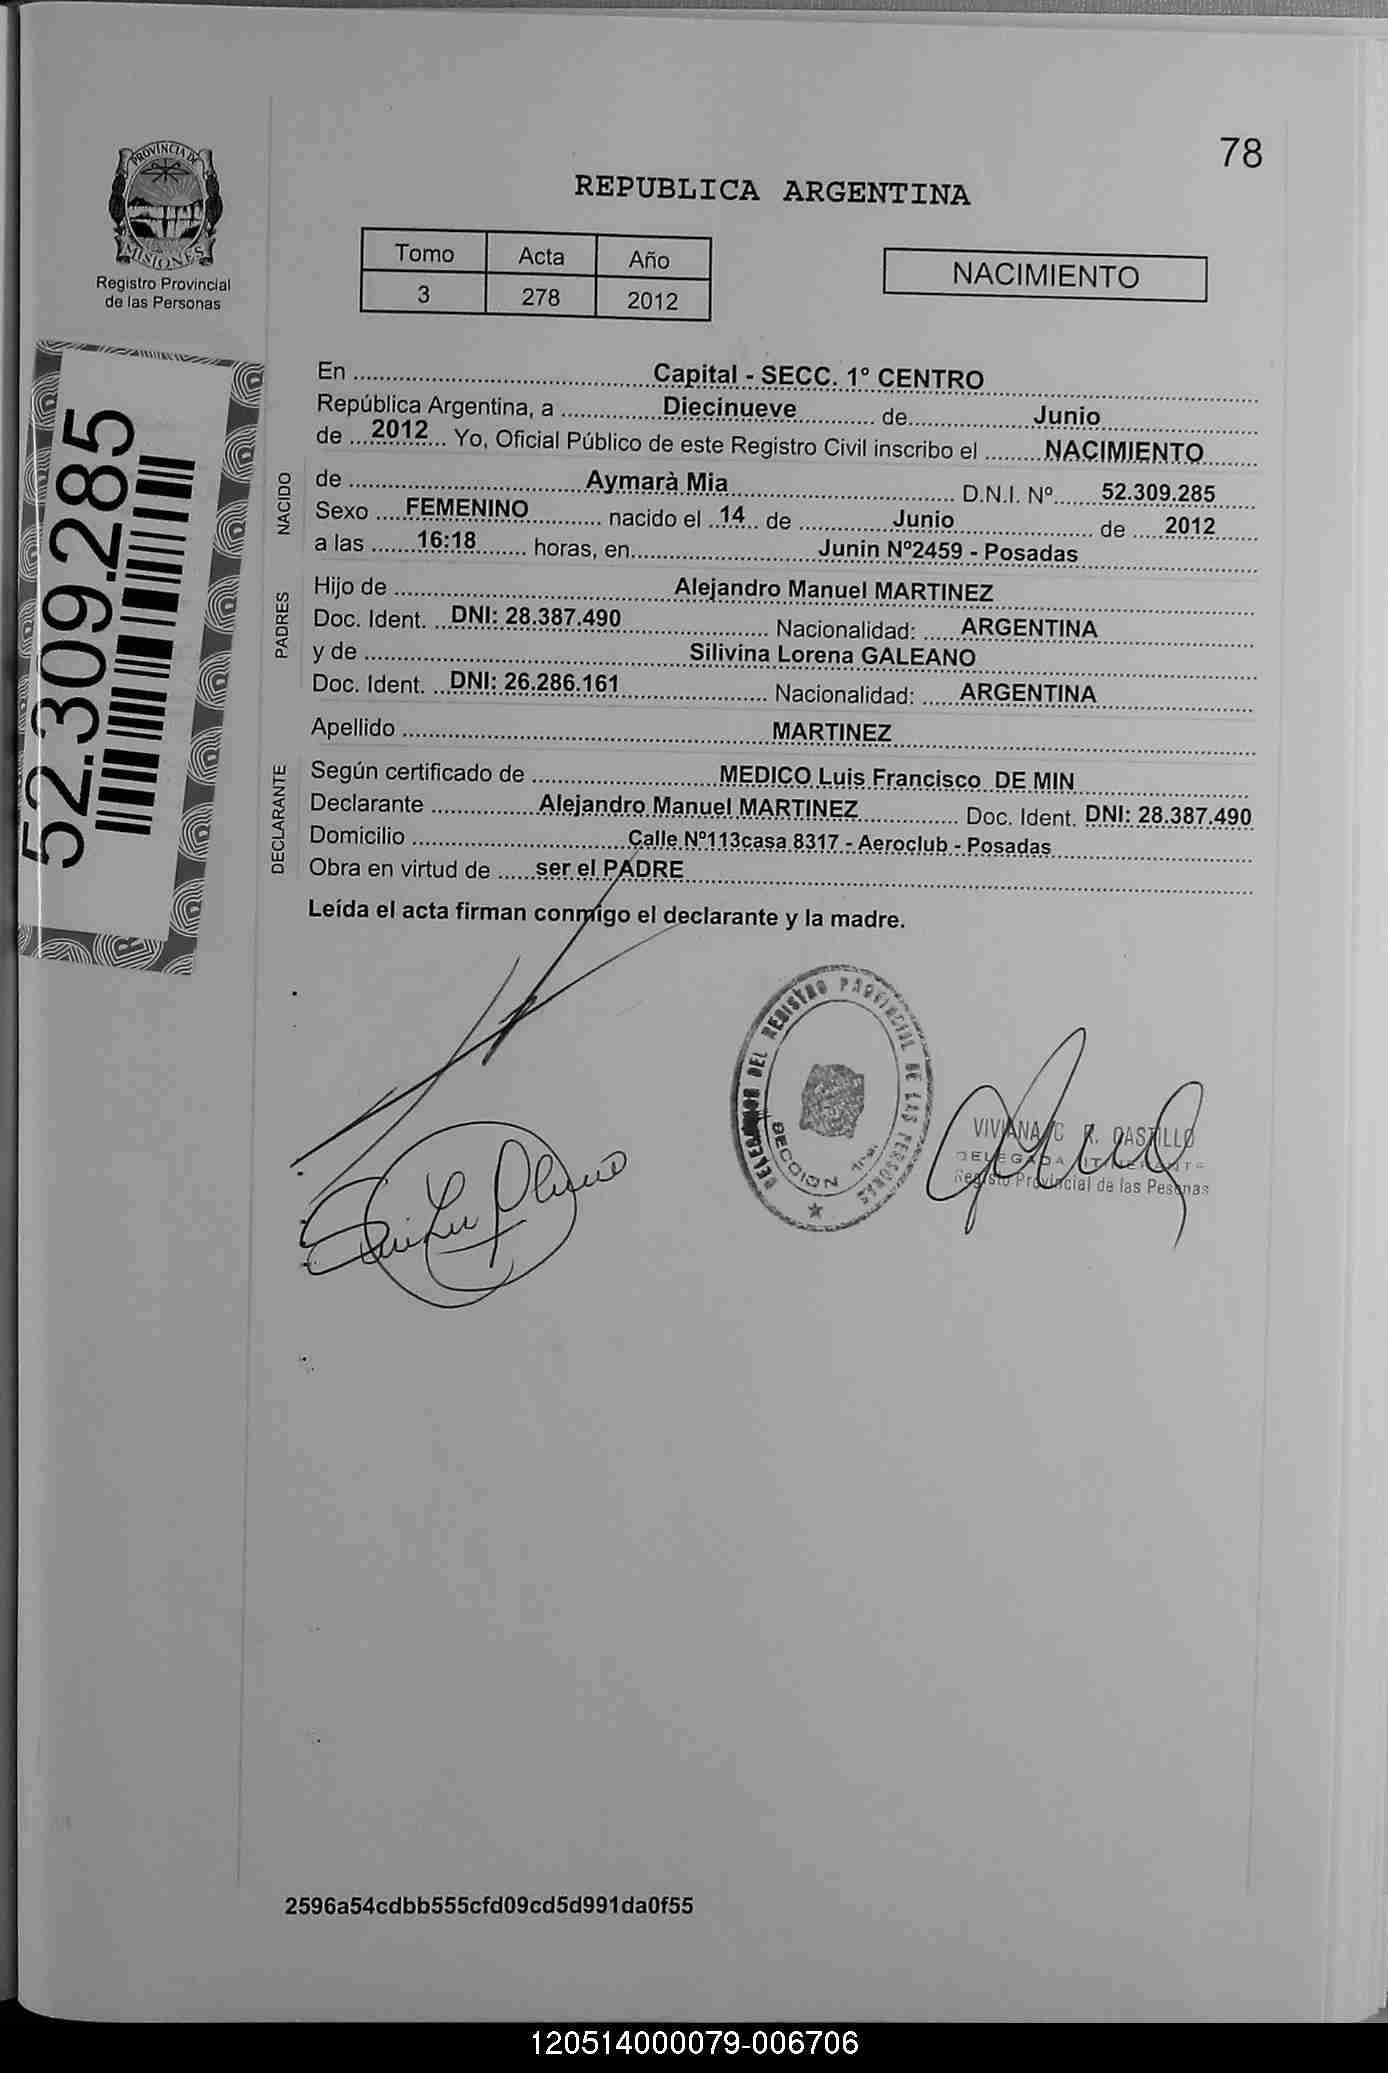 78
PROVINCIA DE
MISIONES
Registro Provincial
de las Personas
REPUBLICA ARGENTINA
Tomo Acta Año
3 278 2012
NACIMIENTO
52.309.285
En ........ Capital - SECC. 1º CENTRO
República Argentina, a ........ Diecinueve ........ de ........ Junio
de ... 2012 ... Yo, Oficial Público de este Registro Civil inscribo el ........ NACIMIENTO
NACIDO
de ........ Aymarà Mia ........ D.N.I. Nº ...... 52.309.285
Sexo .... FEMENINO ........ nacido el .. 14 .. de ........ Junio ........ de ..... 2012
a las ...... 16:18 ...... horas, en ........ Junin Nº2459 - Posadas
PADRES
Hijo de ........ Alejandro Manuel MARTINEZ
Doc. Ident. .. DNI: 28.387.490 ........ Nacionalidad: ..... ARGENTINA
y de ........ Silivina Lorena GALEANO
Doc. Ident. .. DNI: 26.286.161 ........ Nacionalidad: ..... ARGENTINA
Apellido ........ MARTINEZ
DECLARANTE
Según certificado de ........ MEDICO Luis Francisco DE MIN
Declarante ........ Alejandro Manuel MARTINEZ ........ Doc. Ident. DNI: 28.387.490
Domicilio ........ Calle Nº113casa 8317 - Aeroclub - Posadas
Obra en virtud de ..... ser el PADRE
Leída el acta firman conmigo el declarante y la madre.
DEL REGISTRO PROVINCIAL DE LAS PERSONAS
SECCION 1ra.
VIVIANA C. R. CASTILLO
DELEGADA ITINERANTE
Registo Provincial de las Pesonas
2596a54cdbb555cfd09cd5d991da0f55
120514000079-006706